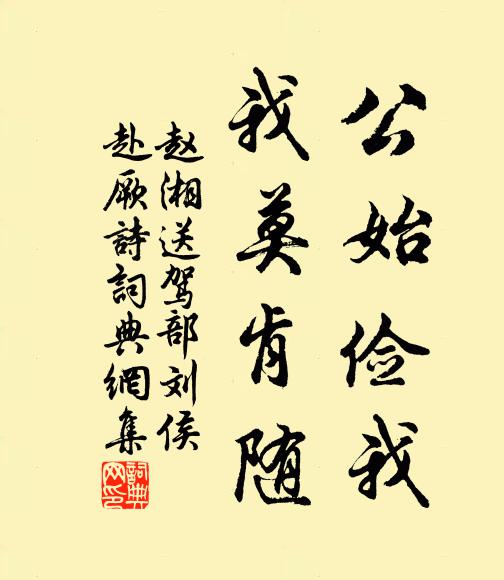 公始俭我
我莫肯随
赵湘送驾部刘侯
赴厥詩詞典網集
詞典网印